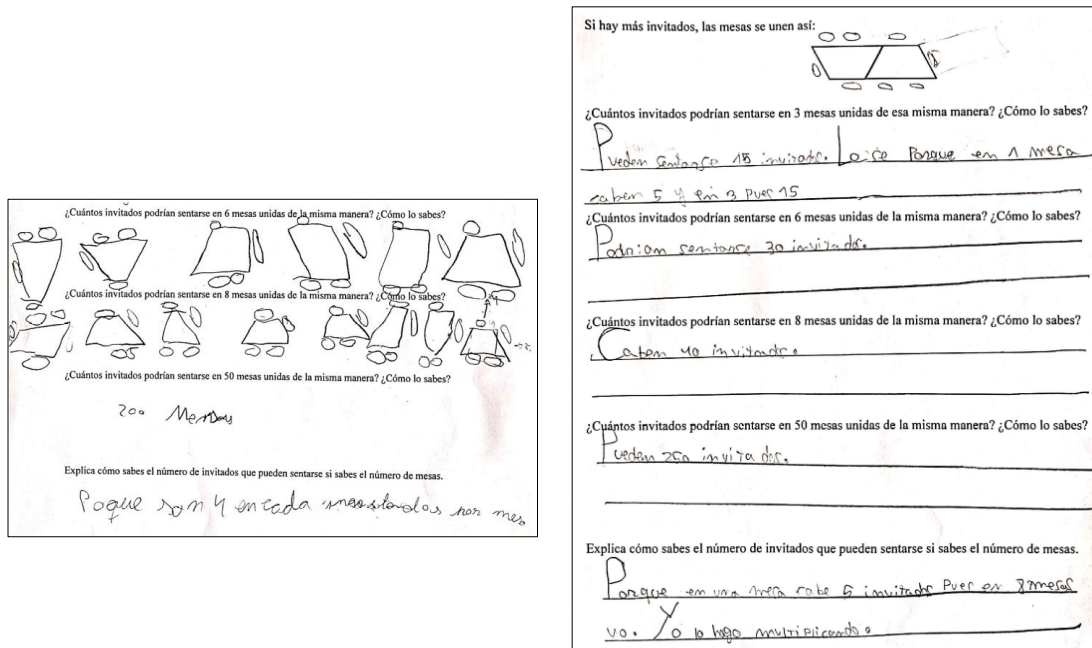 ¿Cuántos invitados podrían sentarse en 6 mesas unidas de la misma manera? ¿Cómo lo sabes?
¿Cuántos invitados podrían sentarse en 8 mesas unidas de la misma manera? ¿Cómo lo sabes?
¿Cuántos invitados podrían sentarse en 50 mesas unidas de la misma manera? ¿Cómo lo sabes?
200
Explica cómo sabes el número de invitados que pueden sentarse si sabes el número de mesas.
Poque son 4 en cada
Si hay más invitados, las mesas se unen así:
¿Cuántos invitados podrían sentarse en 3 mesas unidas de esa misma manera? ¿Cómo lo sabes?
Pueden 15 invitados. Porque en 1 mesa
caben 5 y en 3 pues 15
¿Cuántos invitados podrían sentarse en 6 mesas unidas de la misma manera? ¿Cómo lo sabes?
Podrian sentarse 30 invitados.
¿Cuántos invitados podrían sentarse en 8 mesas unidas de la misma manera? ¿Cómo lo sabes?
Caben 40
¿Cuántos invitados podrían sentarse en 50 mesas unidas de la misma manera? ¿Cómo lo sabes?
Pueden 250 invitados.
Explica cómo sabes el número de invitados que pueden sentarse si sabes el número de mesas.
Porque en una mesa cabe 5 pues en 8 mesas
Yo lo hago multiplicando.